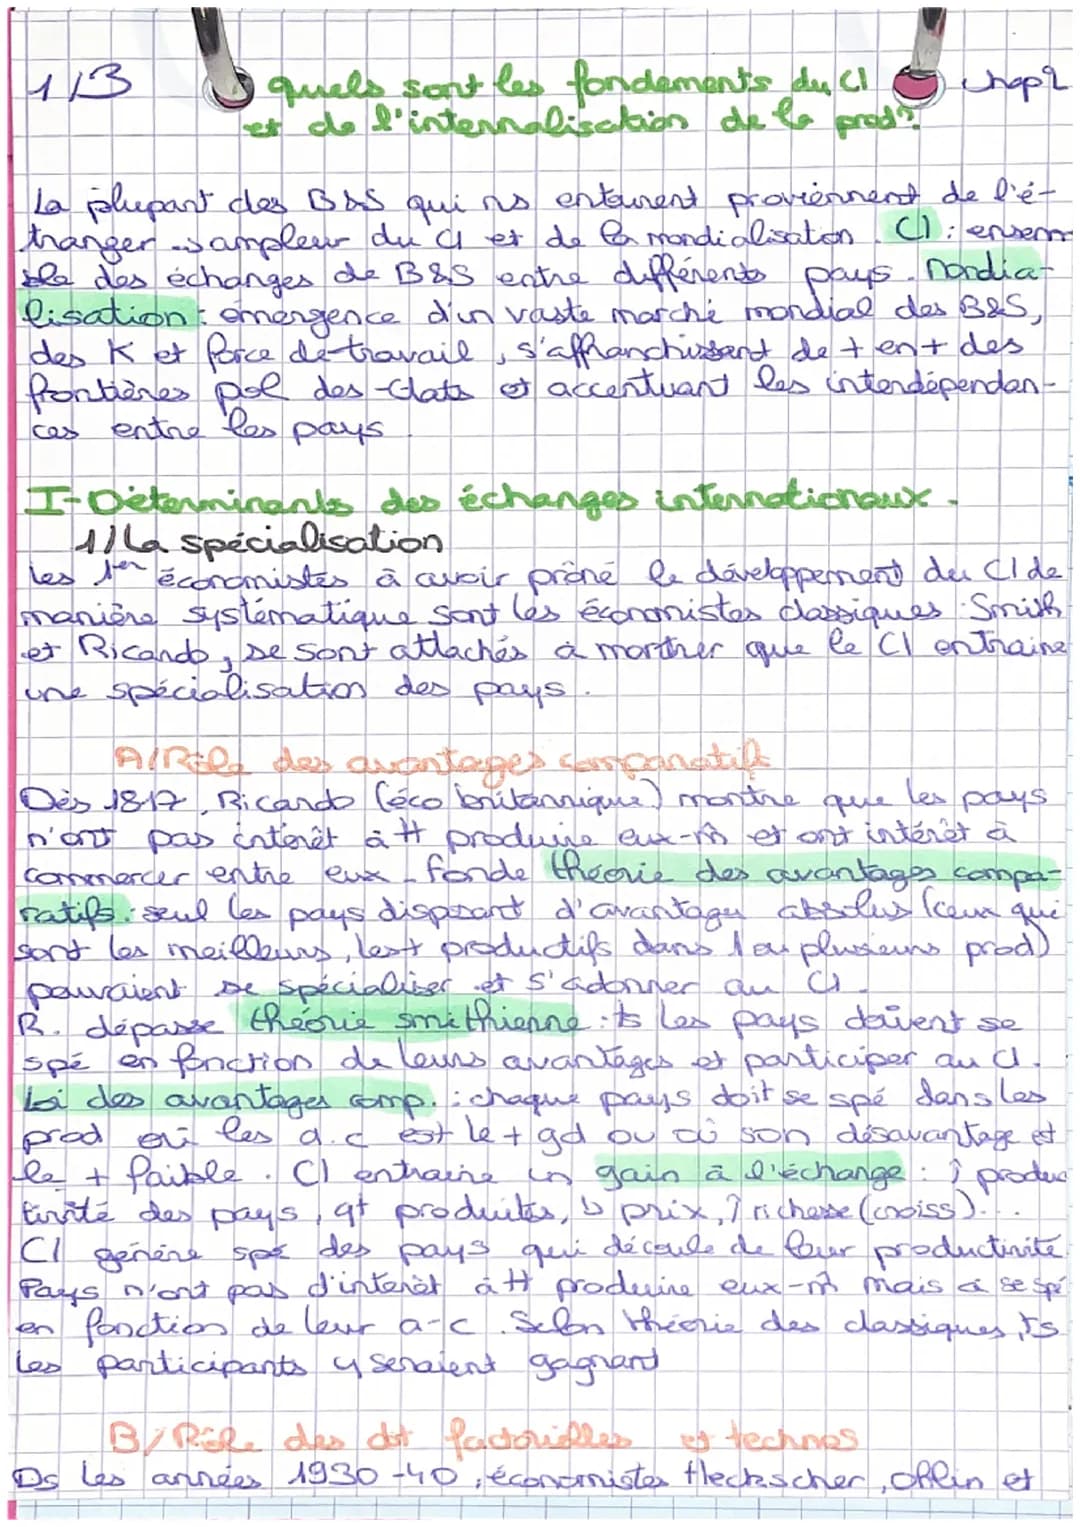 1/3 quels sont les fondements du CI Chap2
et de l'internalisation de la prod?
La plupart des B&S qui ns entourent proviennent de l'é-
tranger → ampleur du CI et de la mondialisation. CI : ensem
ble des échanges de B&S entre différents pays. Mondia-
lisation : émergence d'un vaste marché mondial des B&S,
des K et force de travail, s'affranchissant de + en + des
frontières pol des états et accentuant les interdépendan-
ces entre les pays
I - Déterminants des échanges internationaux.
1/ La spécialisation
Les 1er économistes à avoir prôné le développement du CI de
manière systématique sont les économistes classiques : Smith
et Ricardo, se sont attachés à montrer que le CI entraine
une spécialisation des pays.
A/ Rôle des avantages comparatifs
Dès 1817, Ricardo (éco britannique) montre que les pays
n'ont pas intérêt à tt produire eux-m̂ et ont intérêt à
commercer entre eux → fonde théorie des avantages compa-
ratifs : seul les pays disposant d'avantages absolus (ceux qui
sont les meilleurs, les + productifs dans 1 ou plusieurs prod)
pouvaient se spécialiser et s'adonner au CI.
R. dépasse théorie smithienne : ts les pays doivent se
spé en fonction de leurs avantages et participer au CI.
Loi des avantages comp. : chaque pays doit se spé dans les
prod où les a.c est le + gd ou où son désavantage est
le + faible. CI entraine un gain à l'échange : ↑ produc
tivité des pays, qt produites, ↓ prix, ↑ richesse (croiss)...
CI génère spé des pays qui découle de leur productivité
Pays n'ont pas d'intérêt à tt produire eux-m̂ mais à se spé
en fonction de leur a-c. Selon théorie des classiques, ts
les participants y seraient gagnant
B/ Rôle des dot factorielles et technos
Ds les années 1930-40, économistes Heckscher, Ohlin et